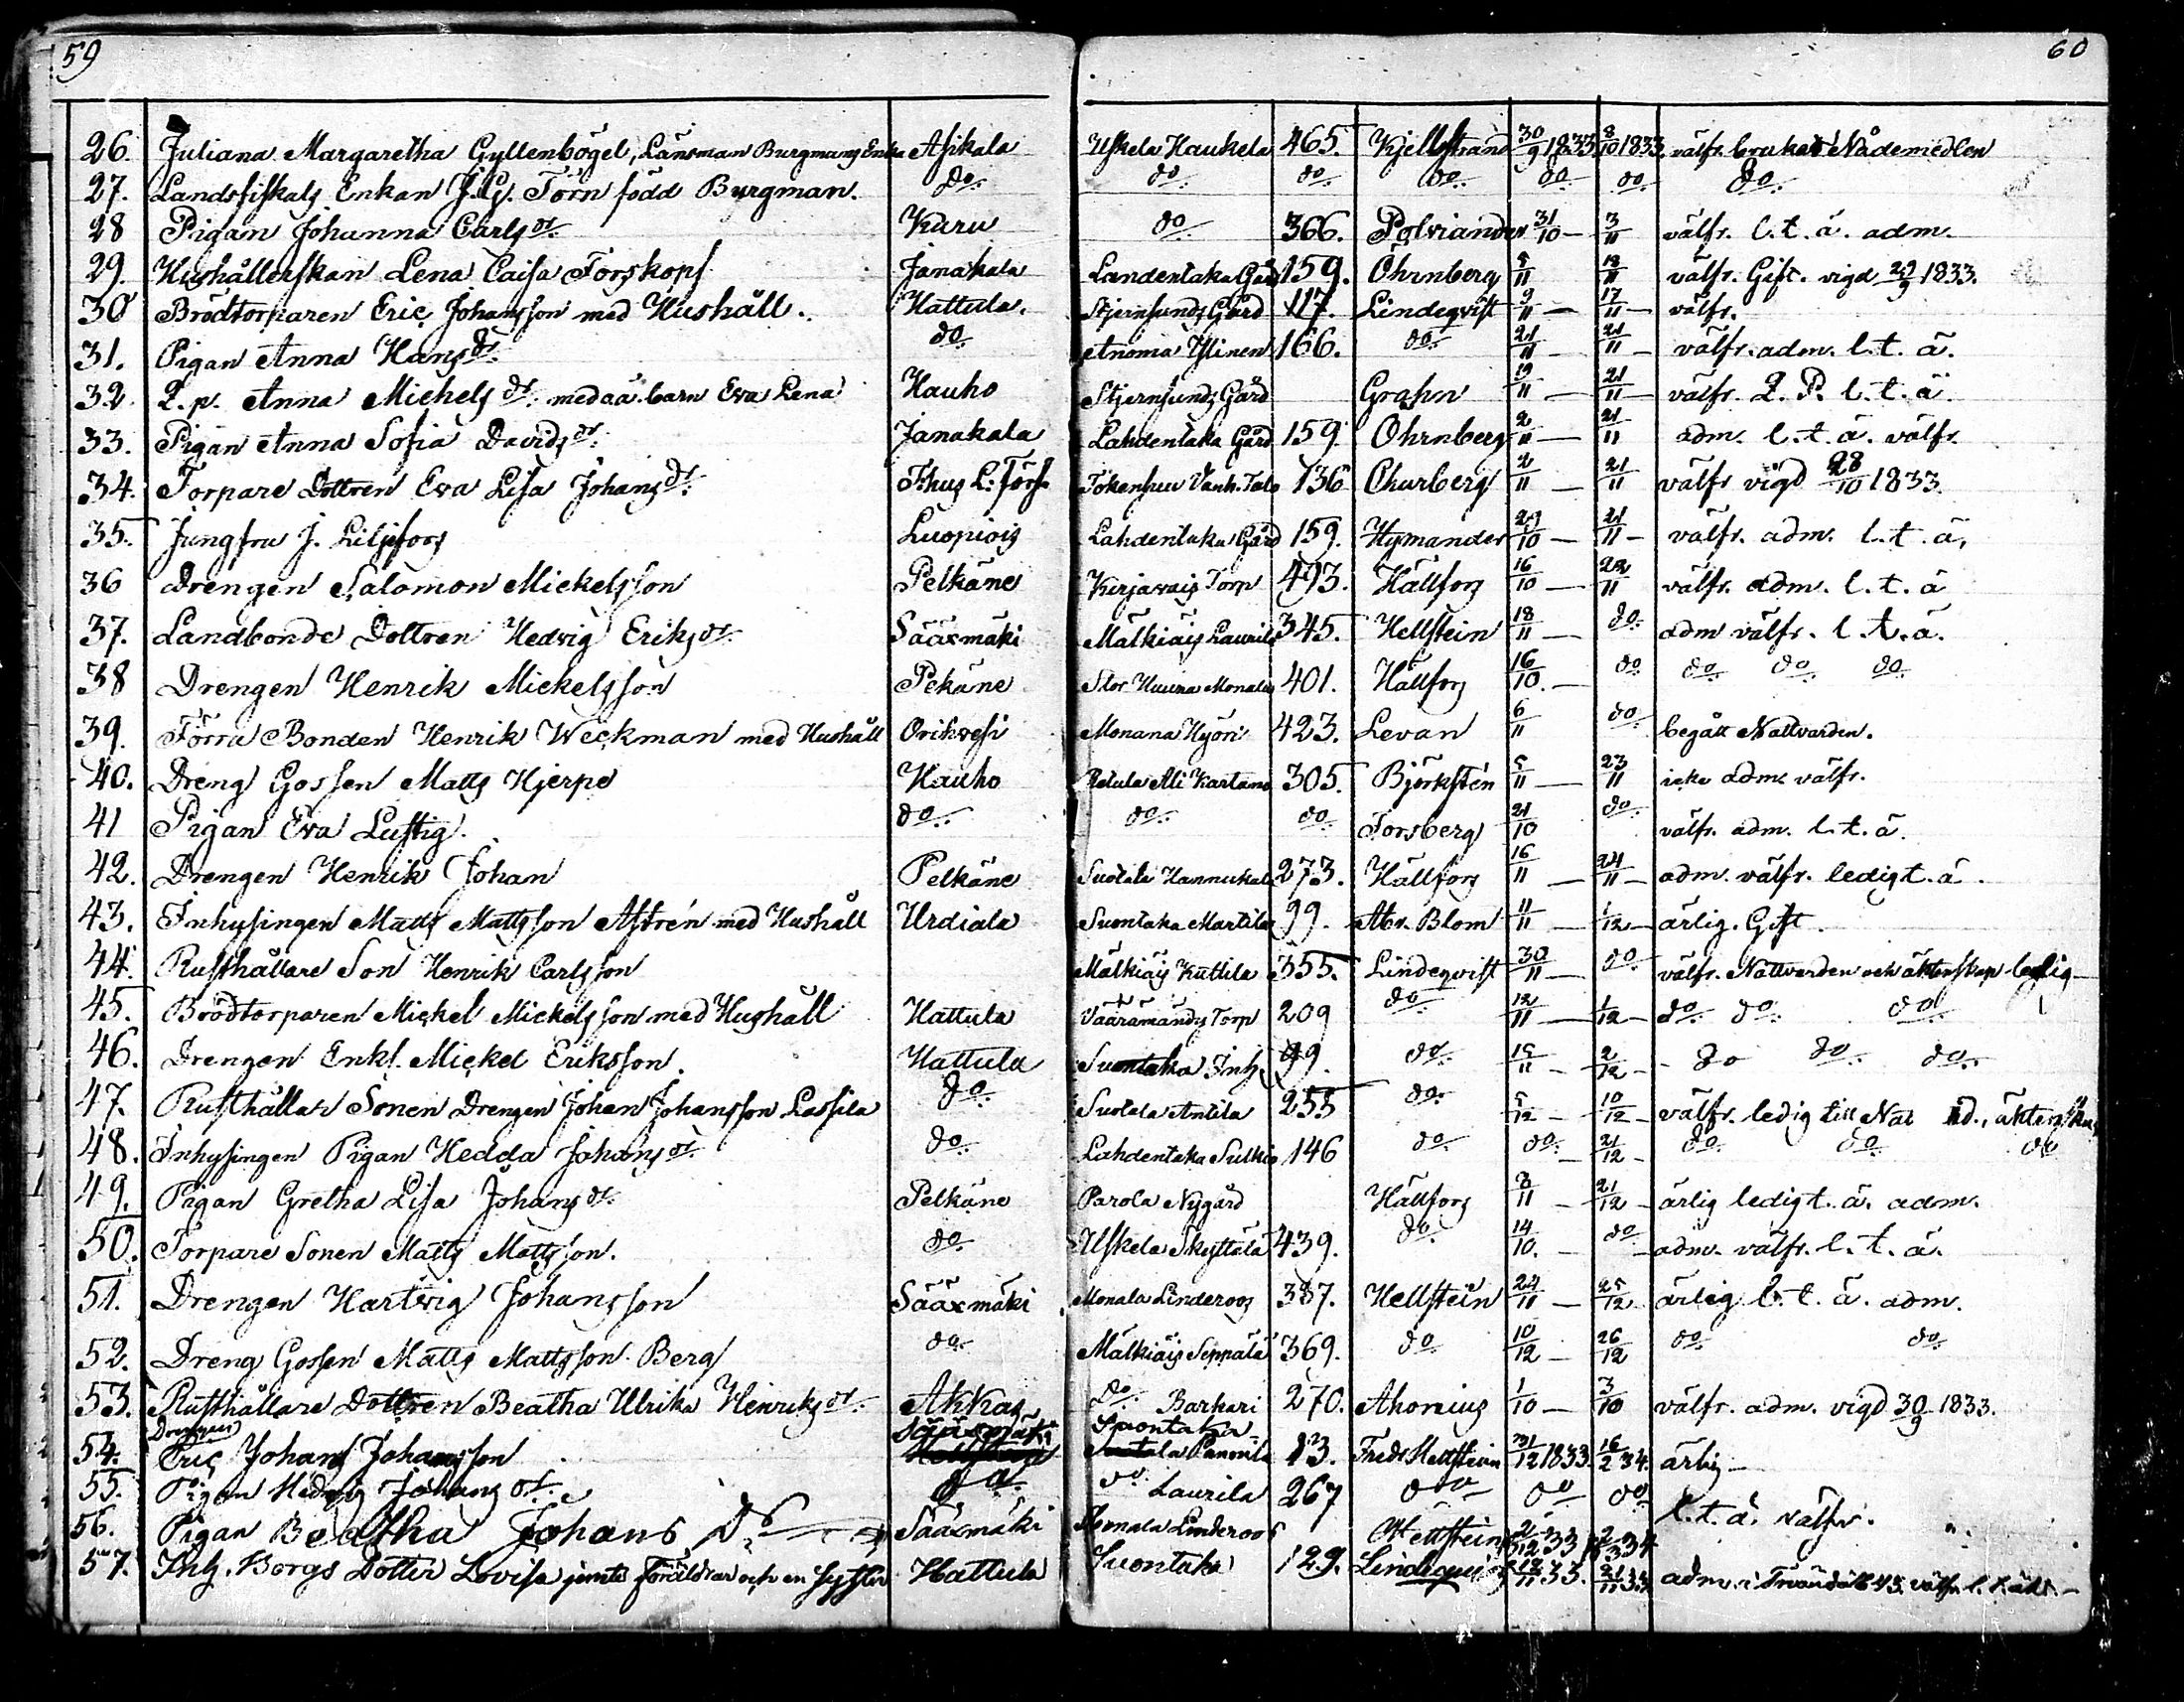 59 60
26. Juliana Margaretha Gyllenbögel, Länsman Burgmans Enka Asikala Uskela Haukela 465. Kjellstrand 30/9 1833. 8/10 1833. välfr. brukat Nådemedlen
27. Landsfiskals Enkan J. G. Törn född Burgman. do do do do do do do
28 Pigan Johanna Carls dr. Kuru do 366. Polviander 31/10 — 3/11 välfr. l. t. ä. adm.
29. Hushållerskan Lena Caisa Forskops Janakala Landentaka Gård 159. Öhrnberg 5/11 18/11 välfr. Gift. vigd 29/9 1833.
30 Brödtorparen Eric Johansson med Hushåll. Hattula. Stjernsunds Gård 117. Lindeqvist 9/11 — 17/11 — välfr.
31. Pigan Anna Hans dr. do Anoma Ylinen 166. do 21/11 — 21/11 — välfr. adm. l. t. ä.
32. Q. p. Anna Michels dr. med oä. barn Eva Lena Hauho Stjernsunds Gård Grahn 19/11 — 21/11 — välfr. Q. P. l. t. ä.
33. Pigan Anna Sofia Davids dr. Janakala Lahdentaka Gård 159. Öhrnberg 2/11 — 21/11 adm. l. t. ä. välfr.
34. Torpare Dottren Eva Lisa Johans dr. T.hus L. Förs. Tokensuu Vanh. Talo 136 Churberg 2/11 — 21/11 välfr vigd 28/10 1833.
35. Jungfru J. Liljefors Luopiois Lahdentaka Gård 159. Hymander 29/10 — 21/11 — välfr. adm. l. t. ä.
36 Drengen Salomon Mickelsson Pelkäne Kirjavais Torp 493. Hällfors 16/10 — 22/11 välfr. adm. l. t. ä
37. Landbonde Dottren Hedvig Eriks dr. Sääxmäki Mälkiäis Laurila 345. Hellstein 18/11 — do. adm välfr. l. t. ä.
38 Drengen Henrik Mickelsson Pekäne Stor Huura Monala 401. Hällfors 16/10. — do do do do
39. Förra Bonden Henrik Weckman med Hushåll Orikvesi Monana Hyöri 423. Levan 6/11 do begått Nattvarden.
40. Dreng Gossen Matts Hjerpe Hauho Retula Ali Kartano 305. Björkstén 5/11 — 23/11 icke adm. välfr.
41 Pigan Eva Lustig. do do do Forsberg 21/10 do välfr. adm. l. t. ä.
42. Drengen Henrik Johan Pelkäne Suotala Hannukala 273. Hällfors 16/11 — 24/11 — adm. välfr. ledig t. ä.
43. Inhysingen Matts Mattsson Astrén med Hushåll Urdiala Suontaka Martila 99. Abr. Blom 11/11 — 1/12 — ärlig. Gift.
44. Rusthållare Son Henrik Carlsson Mälkiäis Kuttila 355. Lindeqvist 30/11 — do välfr. Nattvarden och äktenskap ledig —
45. Brödtorparen Mickel Mickelsson med Hushåll Hattula Väärämändys Torp 209 do 12/11 — 1/12 — do do do
46. Drengen Enkl. Mickel Eriksson. Hattula Suontaka Inh. 99. do 15/11 — 2/12 — do do do
47. Rusthållar Sonen Drengen Johan Johansson Lassila do Suotala Antila 255 do 5/12 — 10/12 — välfr. ledig till Nat
48. Inhysingen Pigan Hedda Johans dr. do Lahdentaka Sulkio 146 do do — 21/12 — do do do
49. Pigan Gretha Lisa Johans dr. Pelkäne Parola Nygård Hällfors 8/11 — 21/12 — ärlig ledig t. ä. adm.
50. Torpare Sonen Matts Mattsson. do Uskela Skyttälä 439. do 14/10. — do adm. välfr. l. t. ä.
51. Drengen Hartvig Johansson Sääxmäki Monala Linderoos 387. Hellstein 24/11 — 25/12 ärlig l. t. ä. adm.
52. Dreng Gossen Matts Mattsson Berg do Mälkiäis Seppälä 369. do 10/12 — 26/12 do do
53. Rusthållare Dottren Beatha Ulrika Henriks dr. Akkas do Barkari 270. Ahonius 1/10 — 3/10 välfr. adm. vigd 30/9 1833.
54. Drengen Eric Johans Johansson Sääxmäki Suontaka Panonila 13. Fredr Hellstein 31/12 1833. 16/2 34. ärlig —
55. Pigan Hedvig Johans dr. do do Laurila 267 do do do l. t. ä. välfr.
56. Pigan Beatha Johans dr. Sääxmäki Monala Linderoos Hellstein
57. Inh. Borgs Dotter Lovisa jemte föräldrar och en syster Hattula Suontaka 129. Lindequist 12/11 33. 21/11 33 adm. i